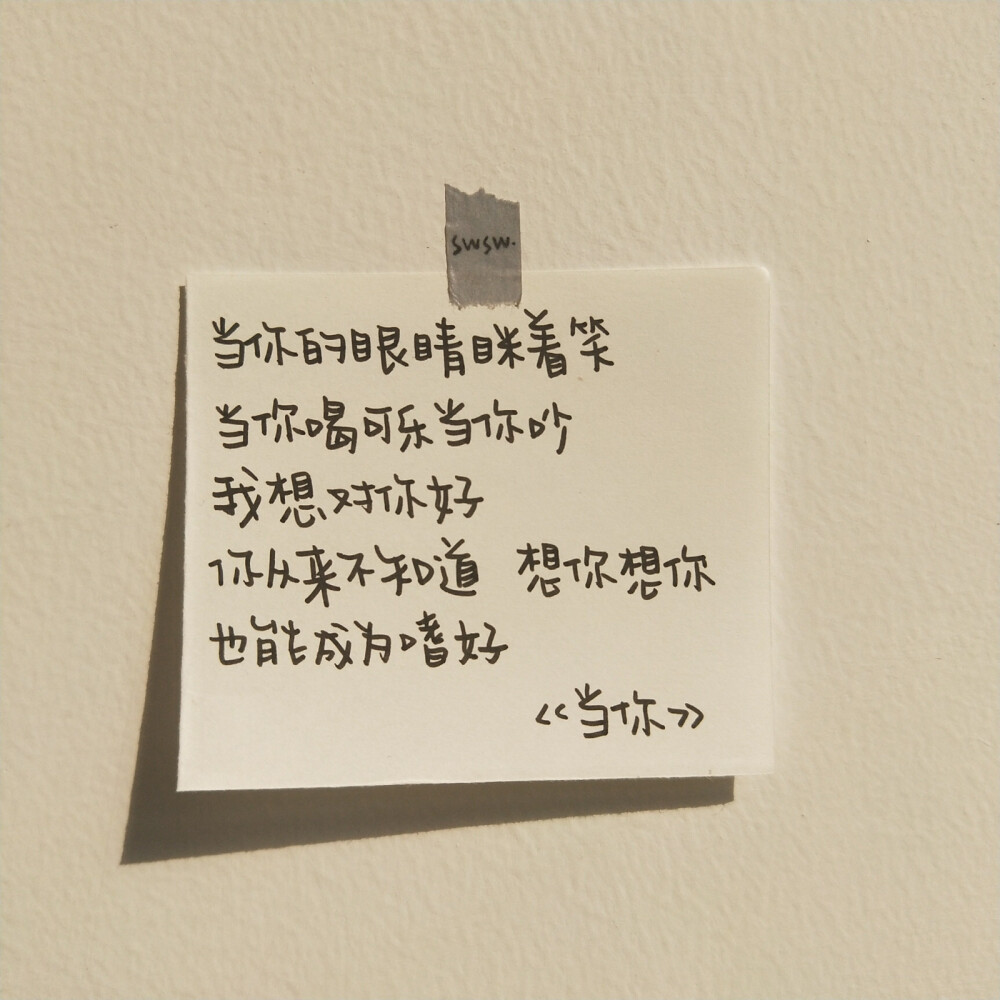 swsw.
当你的眼睛眯着笑
当你喝可乐当你吵
我想对你好
你从来不知道 想你想你
也能成为嗜好
<<当你>>